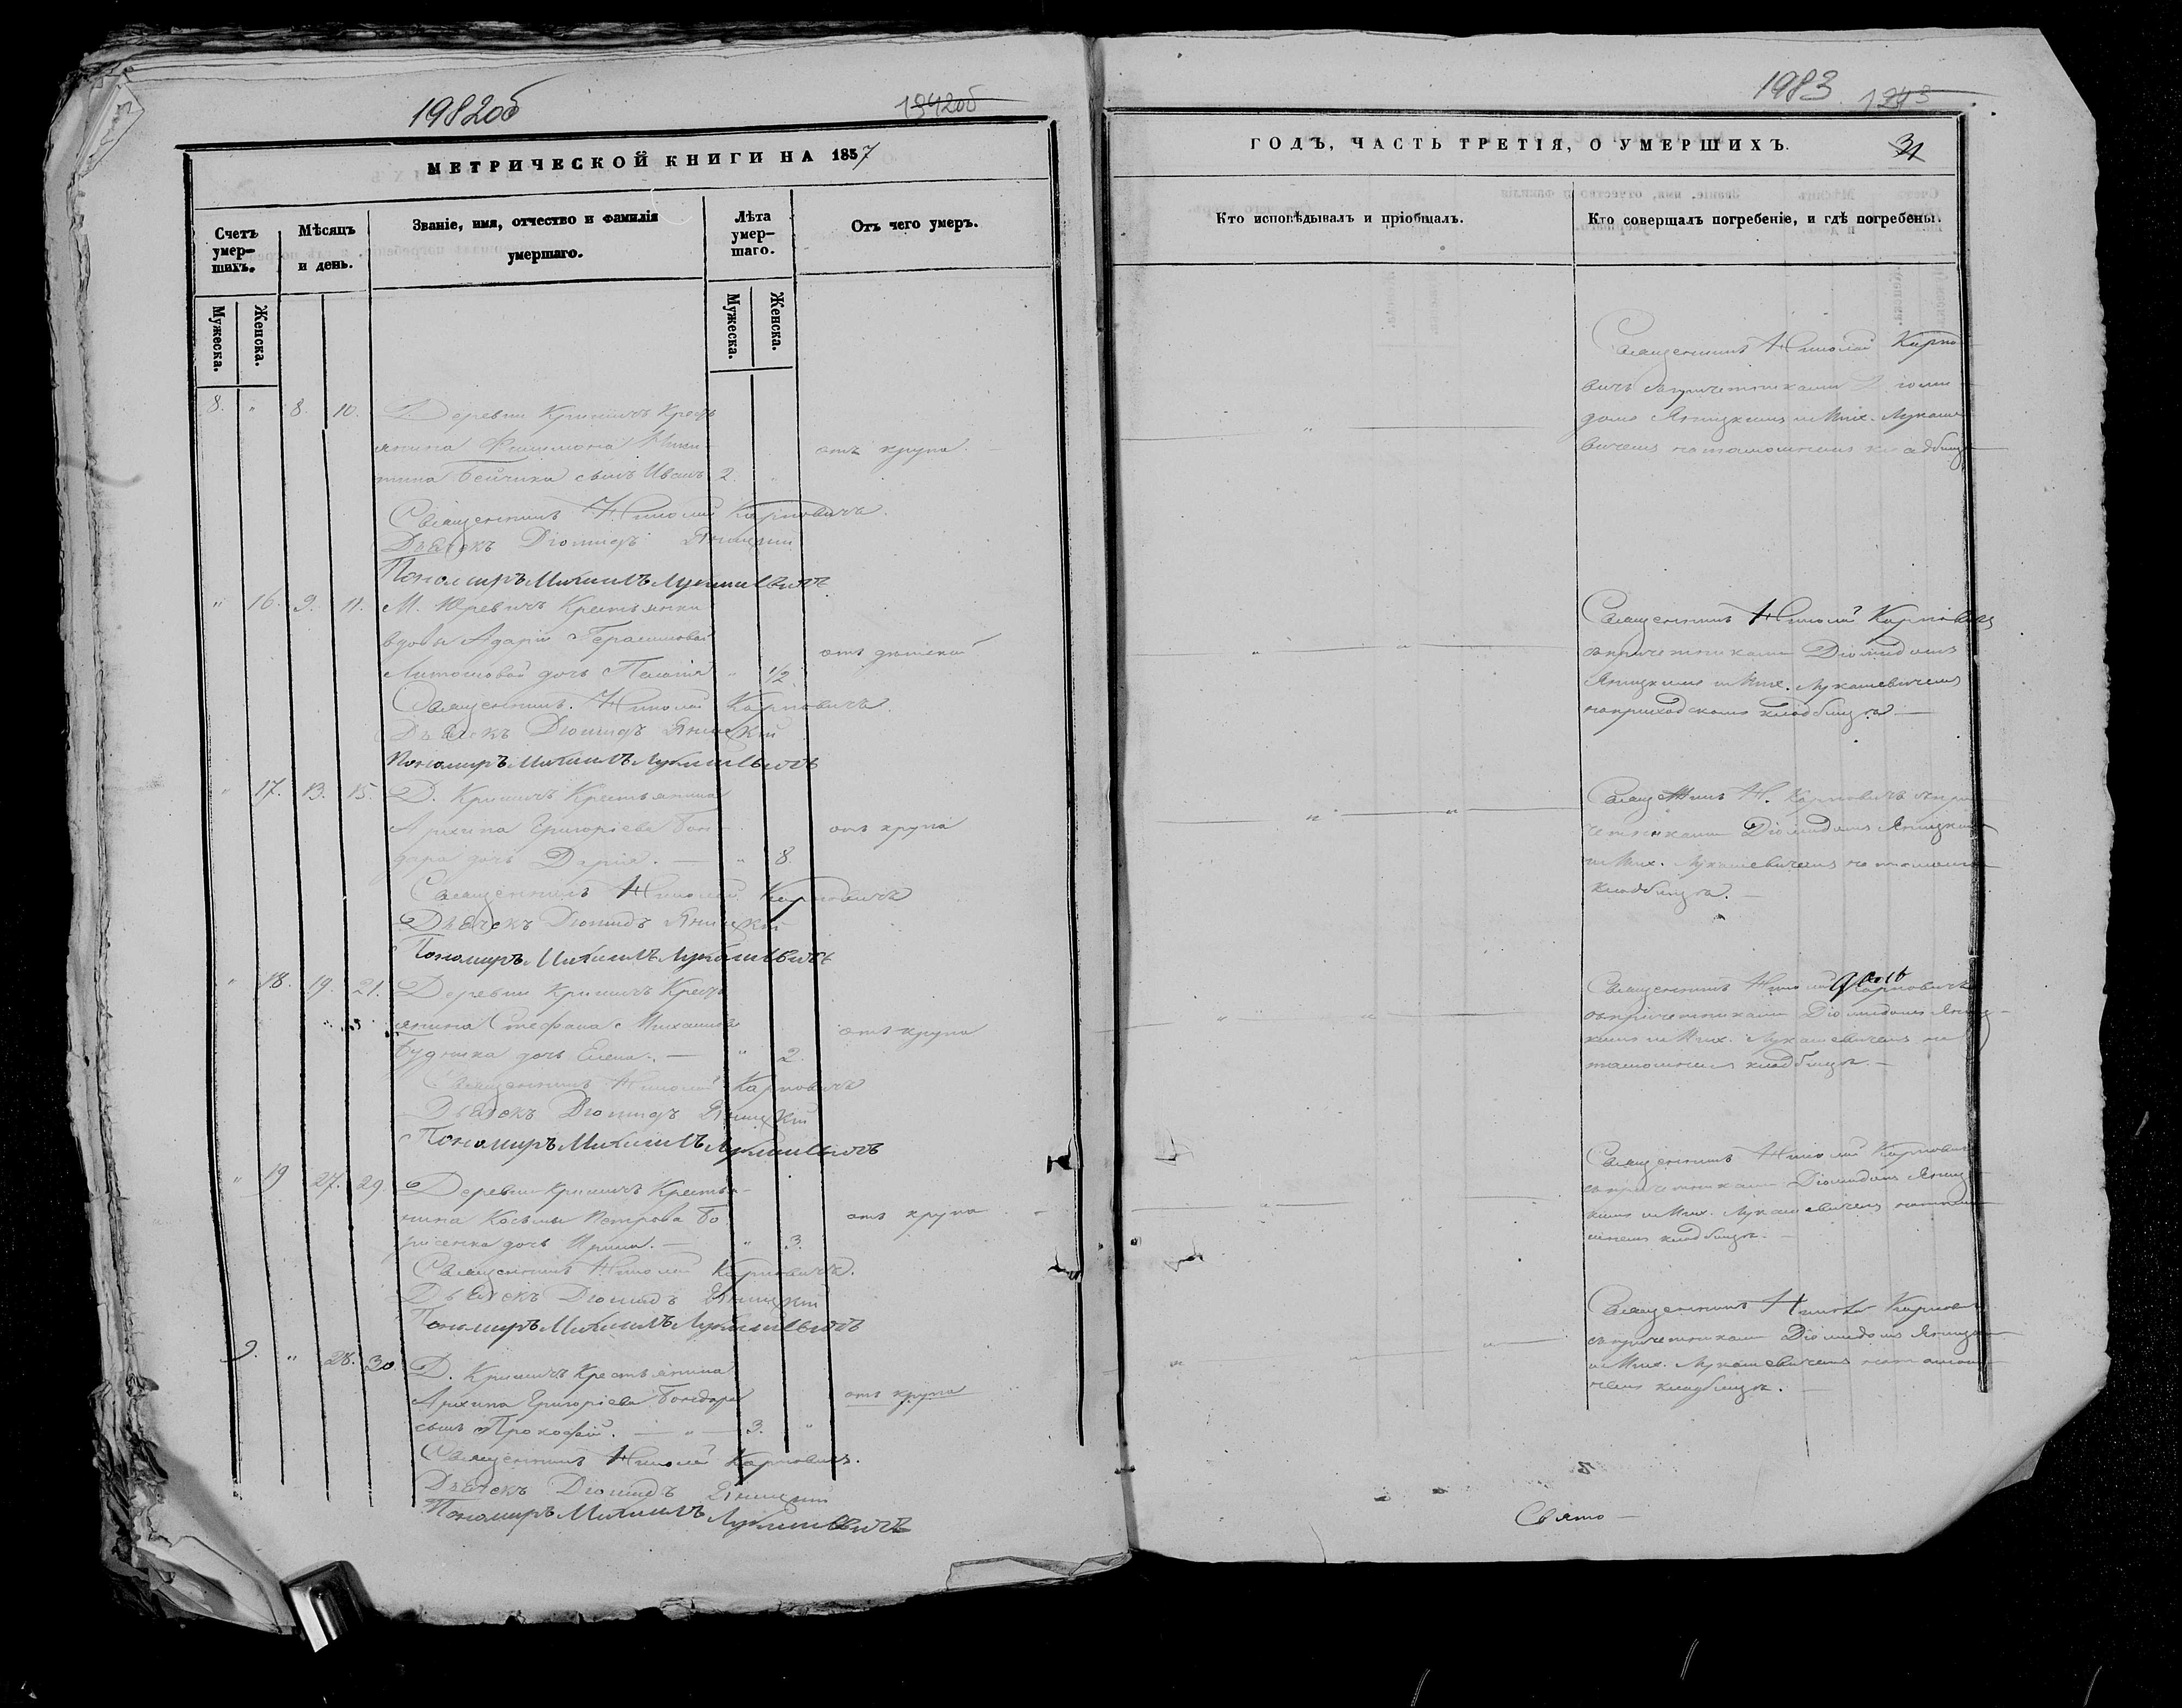 1982об
1342об
МЕТРИЧЕСКОЙ КНИГИ НА 1857
Счетъ умер-шихъ.
Мѣсяцъ и день.
Званіе, имя, отчество и фамилія умершаго.
Лѣта умер-шаго.
Отъ чего умеръ.
Мужеска.
Женска.
Мужеска.
Женска.
8. " 8. 10. Деревни Криничъ Крестъ
янина Филимона
сынъ Иванъ 2. "
отъ крупа.
Священникъ Николай Карповичъ.
Дьячокъ Діомидъ Яницкій
Пономаръ Михаилъ Лукашевичъ
" 16. 9. 11. М. Юревичъ Крестьянки
вдовы Адаріи Герасимовой
дочь Пелагія " 1/2
отъ
Священникъ Николай Карповичъ.
Дьячокъ Діомидъ Яницкій
Пономаръ Михаилъ Лукашевичъ
" 17. 13. 15. Д. Криничъ Крестьянина
Архипа Григоріева Бон-
дара дочь Дарія. — " 8.
отъ крупа
Священникъ Николай Карповичъ
Дьячокъ Діомидъ Яницкій
Пономаръ Михаилъ Лукашевичъ
" 18. 19. 21. Деревни Криничъ Крестъ
янина Стефана Михаилова
Будника дочь Елена. — " 2.
отъ крупа
Священникъ Николай Карповичъ
Дьячокъ Діомидъ Яницкій
Пономаръ Михаилъ Лукашевичъ
" 19 27. 29. Деревни Криничъ Крестья-
нина Косьмы Петрова Бо
рисенка дочь Ирина. — " 3.
отъ крупа
Священникъ Николай Карповичъ.
Дьячокъ Діомидъ Яницкій
Пономаръ Михаилъ Лукашевичъ
9. " 28. 30. Д. Криничъ Крестьянина
Архипа Григоріева Бондара
сынъ Прокофій. — " — 3. "
отъ крупа
Священникъ Николай Карповичъ.
Дьячокъ Діомидъ Яницкій
Пономаръ Михаилъ Лукашевичъ
1983
1343
ГОДЪ, ЧАСТЬ ТРЕТІЯ, О УМЕРШИХЪ.
31
Кто исповѣдывалъ и пріобщалъ.
Кто совершалъ погребеніе, и гдѣ погребены.
Священникъ Николай Карпо-
вичъ съ причетниками Діоми-
домъ Яницкимъ и Мих. Лукаше
вичемъ на тамошнемъ кладбищѣ
Священникъ Николай Карповичъ
съ причетниками Діомидомъ
Яницкимъ и Мих. Лукашевичемъ
на приходскомъ кладбищѣ. —
Священникъ Н. Карповичъ съ при
четниками Діомидомъ Яницкимъ
и Мих. Лукашевичемъ на тамошнемъ
кладбищѣ. —
Священникъ Николай Карповичъ
съ причетниками Діомидомъ Яниц-
кимъ и Мих. Лукашевичемъ на
тамошнемъ кладбищѣ. —
Священникъ Николай Карповичъ
съ причетниками Діомидомъ Яниц
кимъ и Мих. Лукашевичемъ на тамо
шнемъ кладбищѣ. —
Священникъ Николай Карповичъ
съ причетниками Діомидомъ Яницкимъ
и Мих. Лукашевичемъ на тамош-
немъ кладбищѣ. —
Свято —